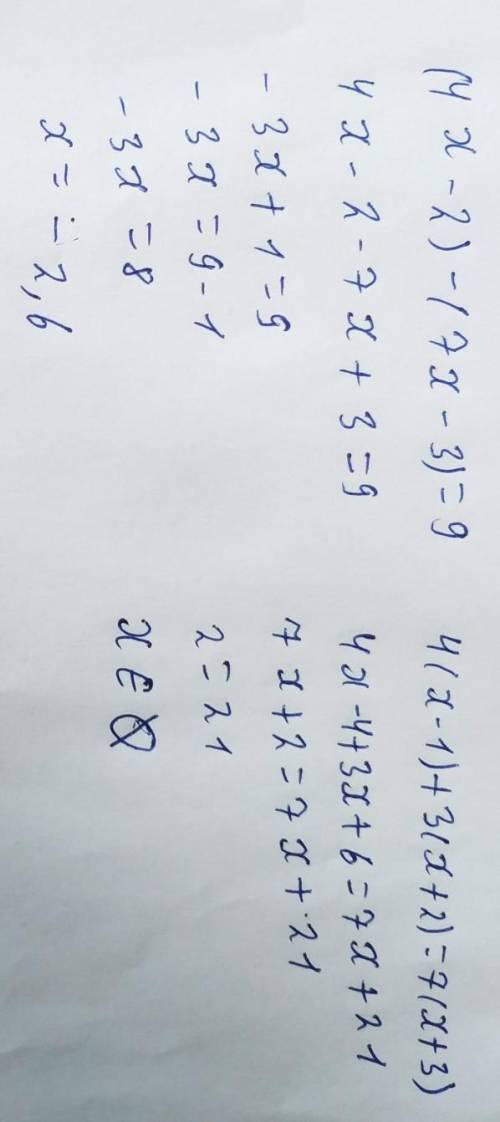 (4x-2)-(7x-3)=9
4x-2-7x+3=9
-3x+1=9
-3x=9-1
-3x=8
x= =-2,6
4(x-1)+3(x+2)=7(x+3)
4x-4+3x+6=7x+21
7x+2=7x+21
2=21
x∈∅